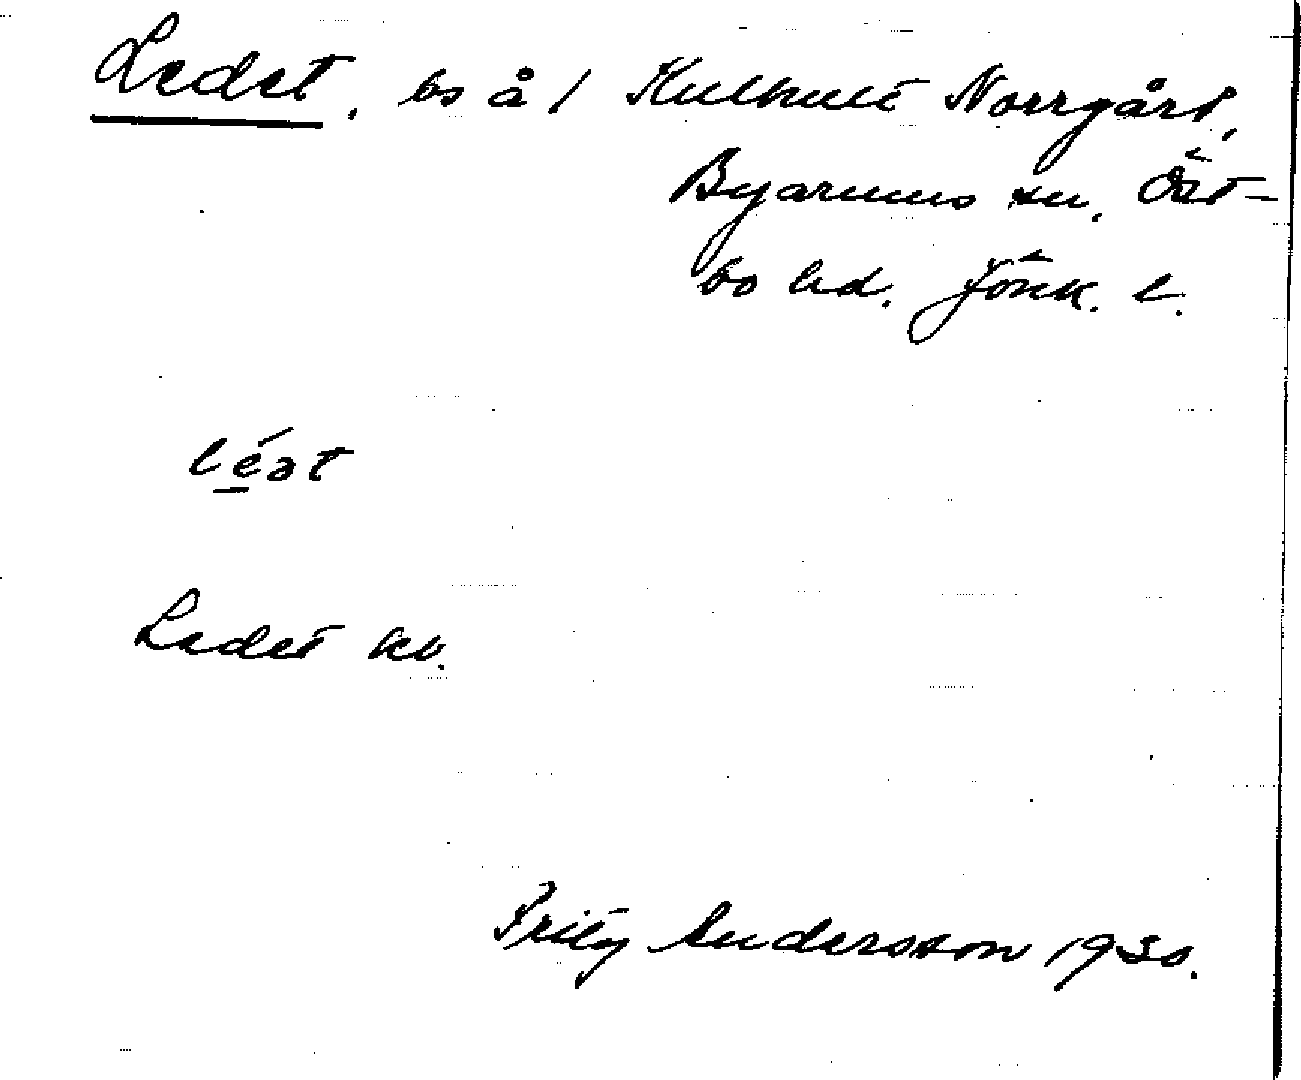 Ledet, bs å 1 Kulhult Norrgård,
Byarums sn, Öst-
bo hd. Jönk. l.
léət
Ledet kv.
Fritz Andersson 1930.